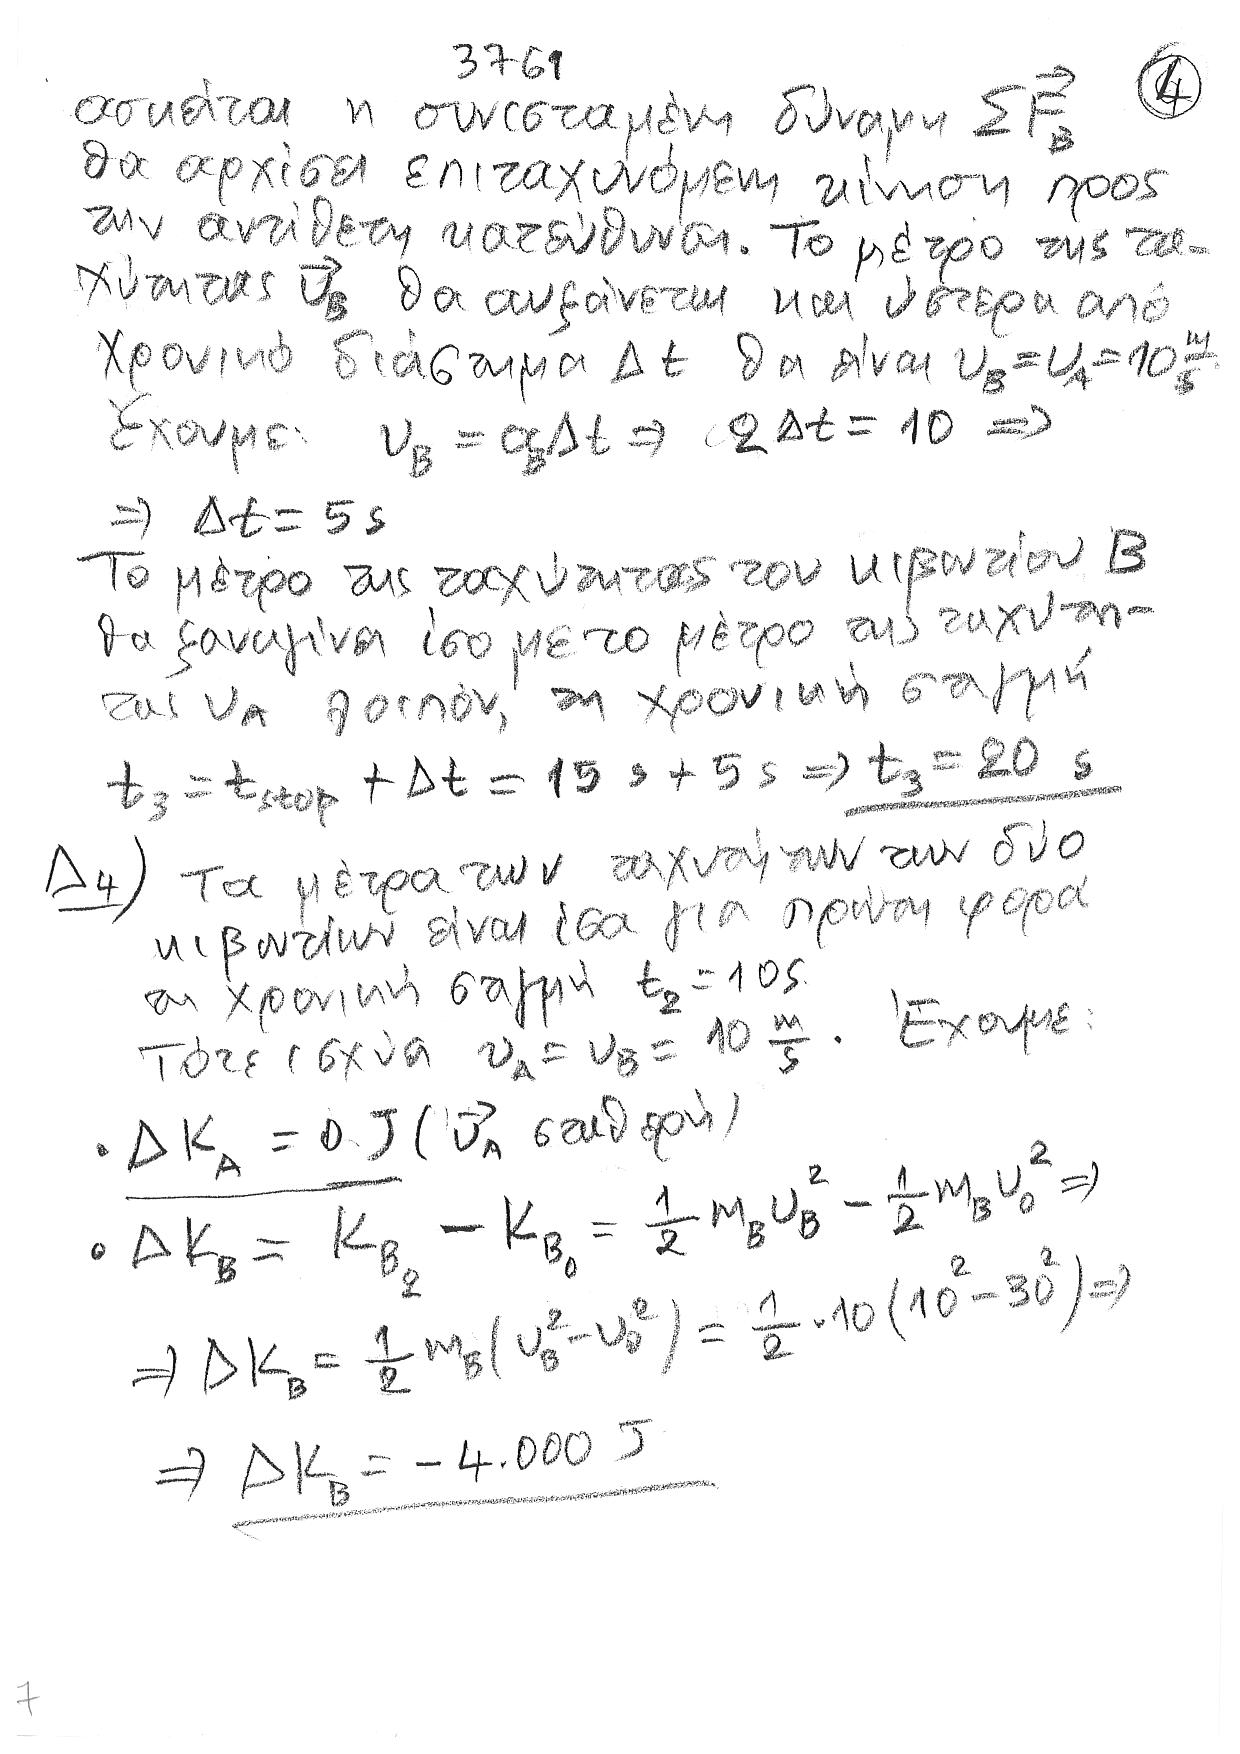 3761
4
ασκείται η συνισταμένη δύναμη ΣF⃗_B
θα αρχίσει επιταχυνόμενη κίνηση προς
την αντίθετη κατεύθυνση. Το μέτρο της τα-
χύτητας υ⃗_B θα αυξάνεται και ύστερα από
χρονικό διάστημα Δt θα είναι υ_B = υ_A = 10 m/s.
Έχουμε: υ_B = α_B Δt ⇒ 2Δt = 10 ⇒
⇒ Δt = 5 s
Το μέτρο της ταχύτητας του κιβωτίου B
θα ξαναγίνει ίσο με το μέτρο της ταχύτη-
τας υ_A λοιπόν, τη χρονική στιγμή
t_3 = t_stop + Δt = 15 s + 5 s ⇒ t_3 = 20 s
Δ4) Τα μέτρα των ταχυτήτων των δύο
κιβωτίων είναι ίσα για πρώτη φορά
τη χρονική στιγμή t_2 = 10 s.
Τότε ισχύει υ_A = υ_B = 10 m/s. Έχουμε:
• ΔK_A = 0 J (υ⃗_A σταθερή)
• ΔK_B = K_B2 − K_B0 = 1/2 m_B υ_B² − 1/2 m_B υ_0² ⇒
⇒ ΔK_B = 1/2 m_B (υ_B² − υ_0²) = 1/2 · 10 (10² − 30²) ⇒
⇒ ΔK_B = −4.000 J
7